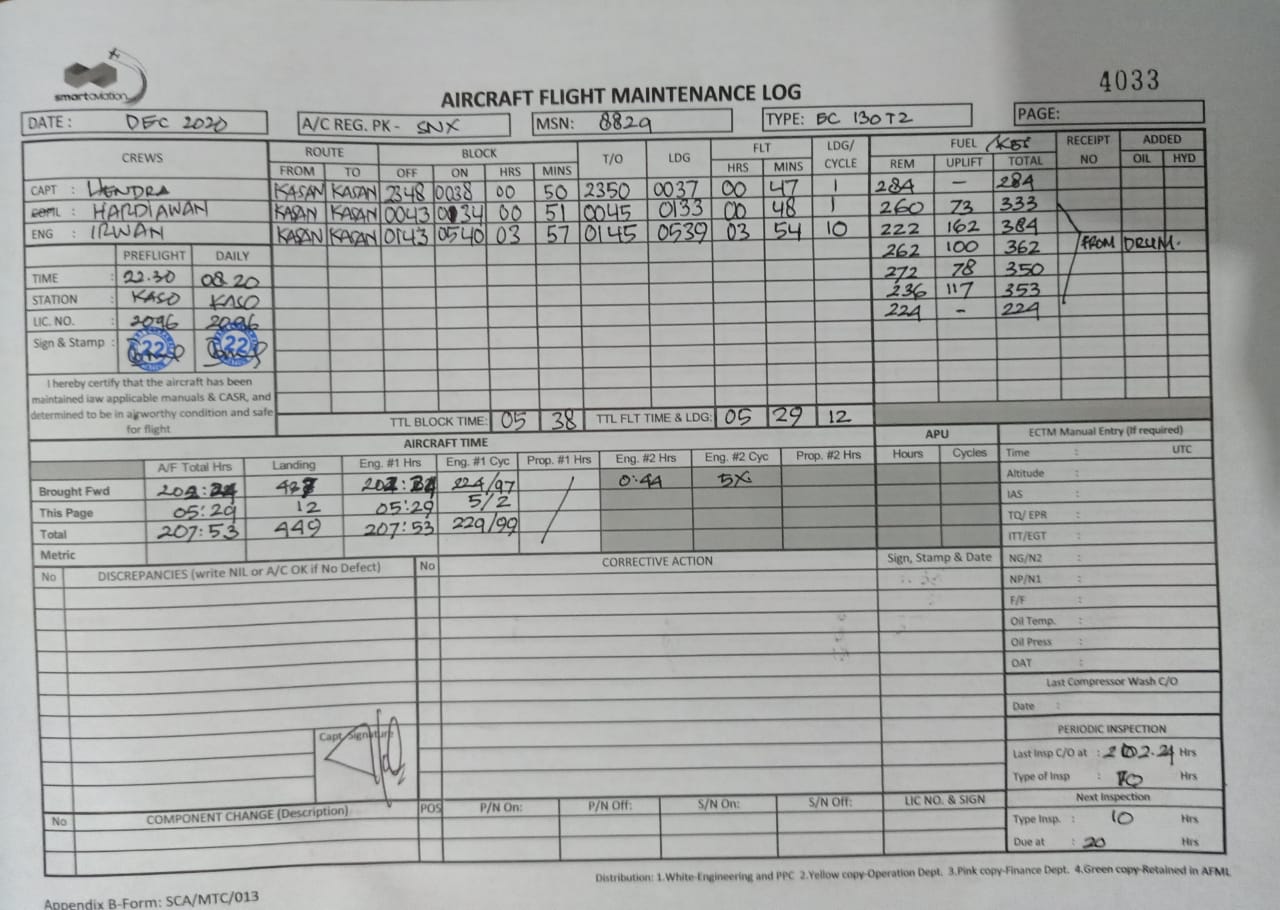 smartaviation
4033
AIRCRAFT FLIGHT MAINTENANCE LOG
DATE : DEC 2020 A/C REG. PK - SNX MSN: 8829 TYPE: EC 130T2 PAGE:
CREWS ROUTE BLOCK T/O LDG FLT LDG/ CYCLE FUEL RECEIPT NO ADDED
FROM TO OFF ON HRS MINS HRS MINS REM UPLIFT TOTAL OIL HYD
CAPT : HENDRA KASAN KASAN 2348 0038 00 50 2350 0037 00 47 1 284 – 284
: HARDIAWAN KASAN KASAN 0043 0134 00 51 0045 0133 00 48 1 260 73 333
ENG : IRWAN KASAN KASAN 0143 0540 03 57 0145 0539 03 54 10 222 162 384
PREFLIGHT DAILY 262 100 362 FROM DRUM.
TIME : 22.30 08.20 272 78 350
STATION : KASO KASO 236 117 353
LIC. NO. : 2096 2096 224 - 224
Sign & Stamp : 22 22
I hereby certify that the aircraft has been
maintained iaw applicable manuals & CASR, and
determined to be in airworthy condition and safe
for flight
TTL BLOCK TIME: 05 38 TTL FLT TIME & LDG: 05 29 12
AIRCRAFT TIME APU ECTM Manual Entry (If required)
A/F Total Hrs Landing Eng. #1 Hrs Eng. #1 Cyc Prop. #1 Hrs Eng. #2 Hrs Eng. #2 Cyc Prop. #2 Hrs Hours Cycles Time : UTC
Brought Fwd 202:24 437 202:24 224/97 0:44 5X Altitude :
This Page 05:29 12 05:29 5/2 IAS :
Total 207:53 449 207:53 229/99 TQ/ EPR :
Metric ITT/EGT :
No DISCREPANCIES (write NIL or A/C OK if No Defect) No CORRECTIVE ACTION Sign, Stamp & Date NG/N2 :
NP/N1 :
F/F :
Oil Temp. :
Oil Press :
OAT :
Last Compressor Wash C/O
Date :
Capt. Signature
PERIODIC INSPECTION
Last Insp C/O at : 202.24 Hrs
Type of Insp : 10 Hrs
No COMPONENT CHANGE (Description) POS P/N On: P/N Off: S/N On: S/N Off: LIC NO. & SIGN Next Inspection
Type Insp. : 10 Hrs
Due at : 20 Hrs
Distribution: 1.White-Engineering and PPC 2.Yellow copy-Operation Dept. 3.Pink copy-Finance Dept. 4.Green copy-Retained in AFML
Appendix B-Form: SCA/MTC/013